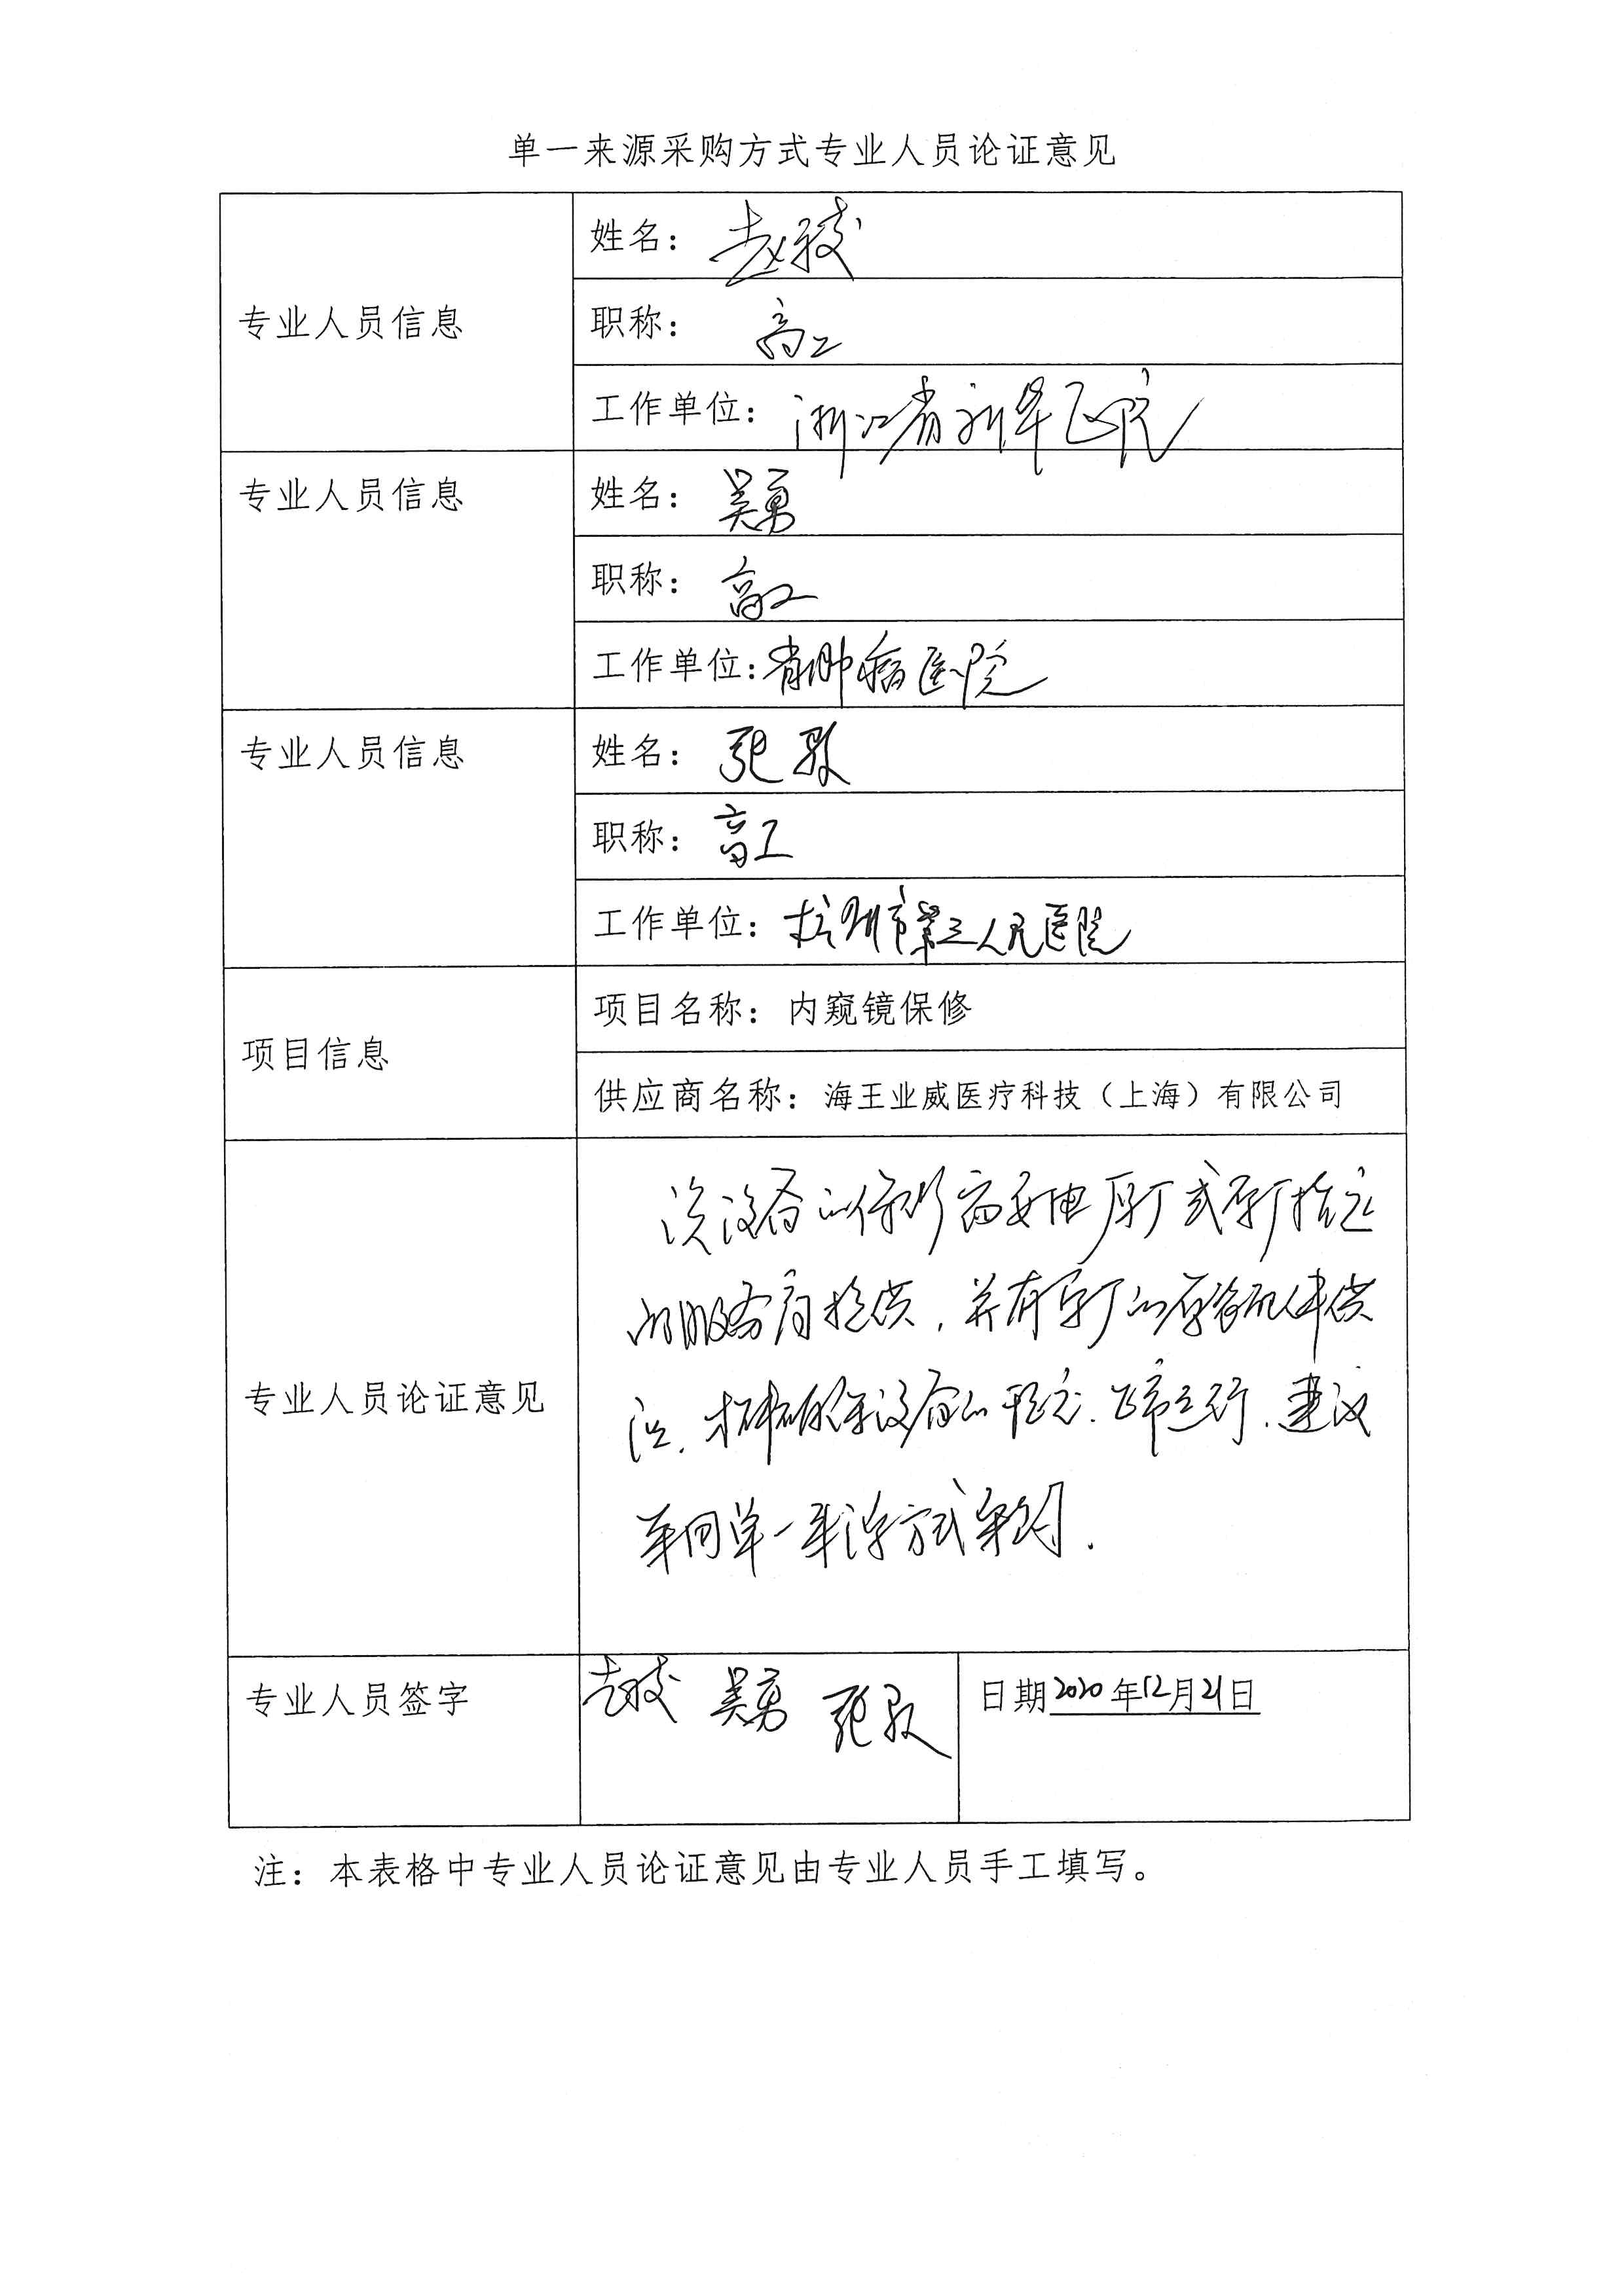 单一来源采购方式专业人员论证意见
专业人员信息
姓名：赵
职称：高工
工作单位：浙江省新华医院
专业人员信息
姓名：吴勇
职称：高工
工作单位：省肿瘤医院
专业人员信息
姓名：张
职称：高工
工作单位：杭州市第三人民医院
项目信息
项目名称：内窥镜保修
供应商名称：海王业威医疗科技（上海）有限公司
专业人员论证意见
该设备的保修需要由原厂或原厂指定
的服务商提供，并有原厂的原装配件供
应，才确保设备的稳定、正常运行，建议
采用单一来源方式采购.
专业人员签字
赵 吴勇 张
日期2020年12月21日
注：本表格中专业人员论证意见由专业人员手工填写。